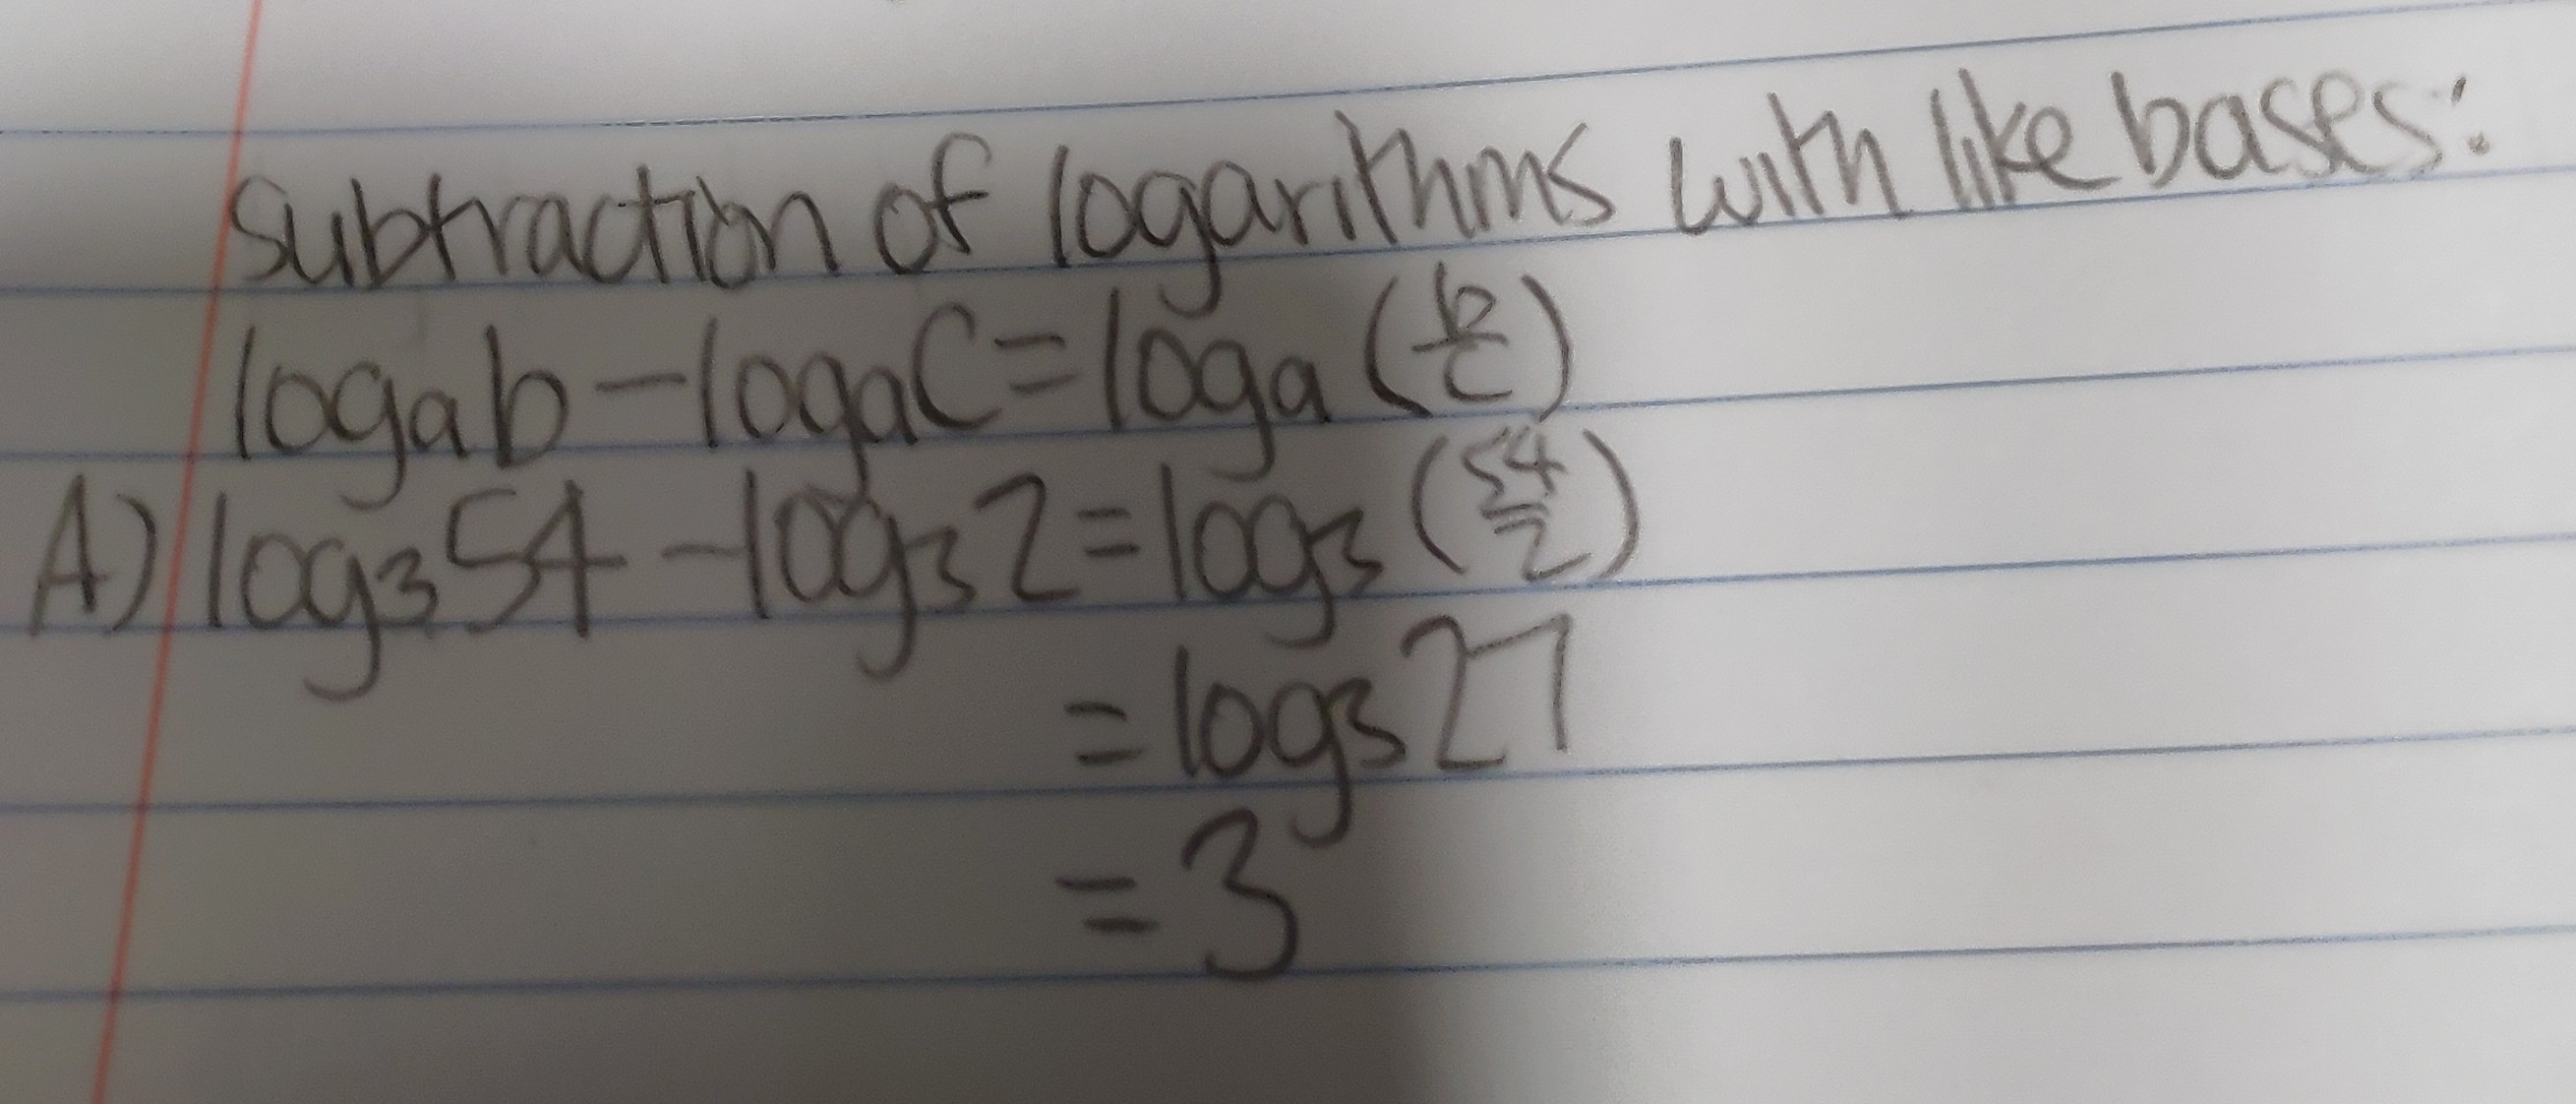 Subtraction of logarithms with like bases:
logₐb - logₐC = logₐ (b/c)
A) log₃54 - log₃2 = log₃ (54/2)
= log₃27
= 3